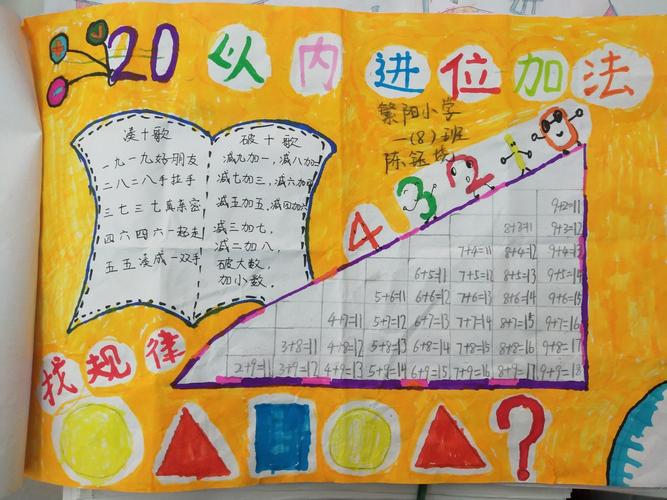 20以内进位加法
繁阳小学
一(8)班
陈
凑十歌
一九一九好朋友
二八二八手拉手
三七三七真亲密
四六四六一起走
五五凑成一双手
破十歌
减九加一,减八加二
减七加三,减六加四
减五加五,减四加六
减三加七,
减二加八,
破大数,
加小数.
4 3 2 1 0
9+2=11
8+3=11 9+3=12
7+4=11 8+4=12 9+4=13
6+5=11 7+5=12 8+5=13 9+5=14
5+6=11 6+6=12 7+6=13 8+6=14 9+6=15
4+7=11 5+7=12 6+7=13 7+7=14 8+7=15 9+7=16
3+8=11 4+8=12 5+8=13 6+8=14 7+8=15 8+8=16 9+8=17
2+9=11 3+9=12 4+9=13 5+9=14 6+9=15 7+9=16 8+9=17 9+9=18
找规律
?